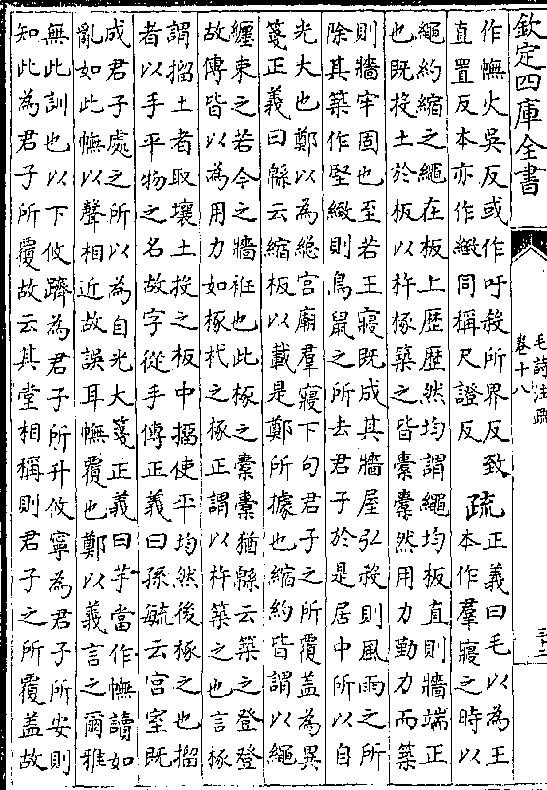 欽定四庫全書
毛詩注疏
卷十八
三十二
作幠火吳反或作吁殺所界反致
直置反本亦作緻同稱尺證反
疏
正義曰毛以為王
本作羣寢之時以
繩約縮之繩在板上歴歴然均謂繩均板直則牆端正
也既投土於板以杵椓築之皆橐橐然用力勤力而築
則牆牢固也至若王寢既成其牆屋弘殺則風雨之所
除其築作堅緻則鳥鼠之所去君子於是居中所以自
光大也鄭以為緫宫廟羣寢下句君子之所覆盖為異
箋正義曰緜云縮板以載是鄭所據也縮約皆謂以繩
纒束之若今之牆衽也此椓之橐橐猶緜云築之登登
故傳皆以為用力如椓杙之椓正謂以杵築之也言椓
謂搯土者取壤土投之板中搯使平均然後椓之也搯
者以手平物之名故字從手傳正義曰孫毓云宫室既
成君子處之所以為自光大箋正義曰芋當作幠讀如
亂如此幠以聲相近故誤耳幠覆也鄭以義言之爾雅
無此訓也以下攸躋為君子所升攸寧為君子所安則
知此為君子所覆故云其堂相稱則君子之所覆盖故